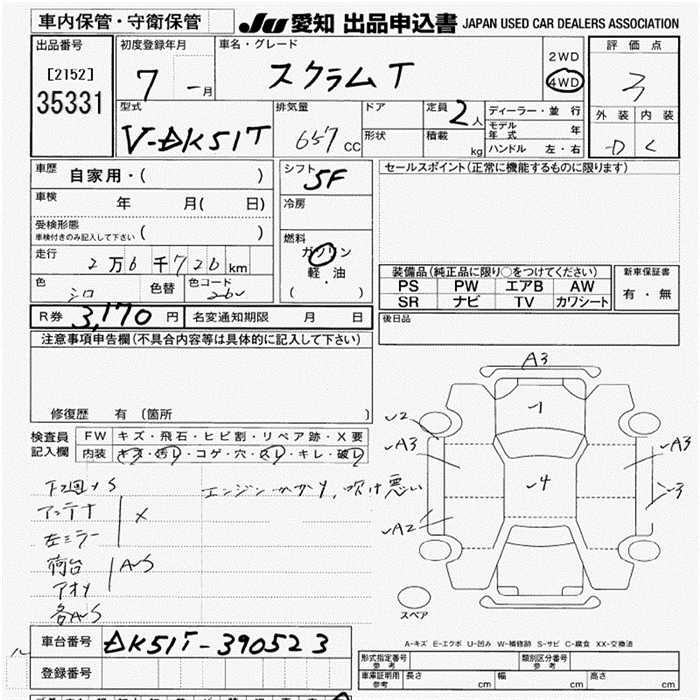 車内保管・守衛保管
JU 愛知 出品申込書 JAPAN USED CAR DEALERS ASSOCIATION
出品番号 [2152] 35331
初度登録年月 7 - 月
車名・グレード スクラムT
2WD
4WD
評価点 3
外装 内装
D C
型式 V-DK51T
排気量 657 CC
ドア
形状
定員 2人
積載 kg
ディーラー・並行
モデル年式 年
ハンドル 左・右
車歴 自家用・( )
車検 年 月( 日)
受検形態
車検付きのみ記入して下さい ( )
走行 2万6千726km
色 シロ 色替 色コード 26U
R券 3,170 円 名変通知期限 月 日
シフト 5F
冷房
燃料
ガソリン
軽・油
( )
セールスポイント(正常に機能するものに限ります)
装備品(純正品に限り○をつけてください)
PS PW エアB AW
SR ナビ TV カワシート
新車保証書
有・無
後日品
注意事項申告欄(不具合内容等は具体的に記入して下さい)
修復歴 有 (箇所 )
検査員記入欄
FW キズ・飛石・ヒビ割・リペア跡・X要
内装 キズ・汚レ・コゲ・穴・スレ・キレ・破レ
下回りS
アンテナ
左ミラー
X
荷台
アオリ
AS
エンジンかかり、吹け悪い
A3
1
2
A3
4
A3
3
A2
スペア
車台番号 DK51T-390523
登録番号
A-キズ E-エクボ U-凹み W-補修跡 S-サビ C-腐食 XX-交換済
形式指定番号 参考
類別区分番号 参考
車庫証明用 参考 長さ cm 幅 cm 高さ cm